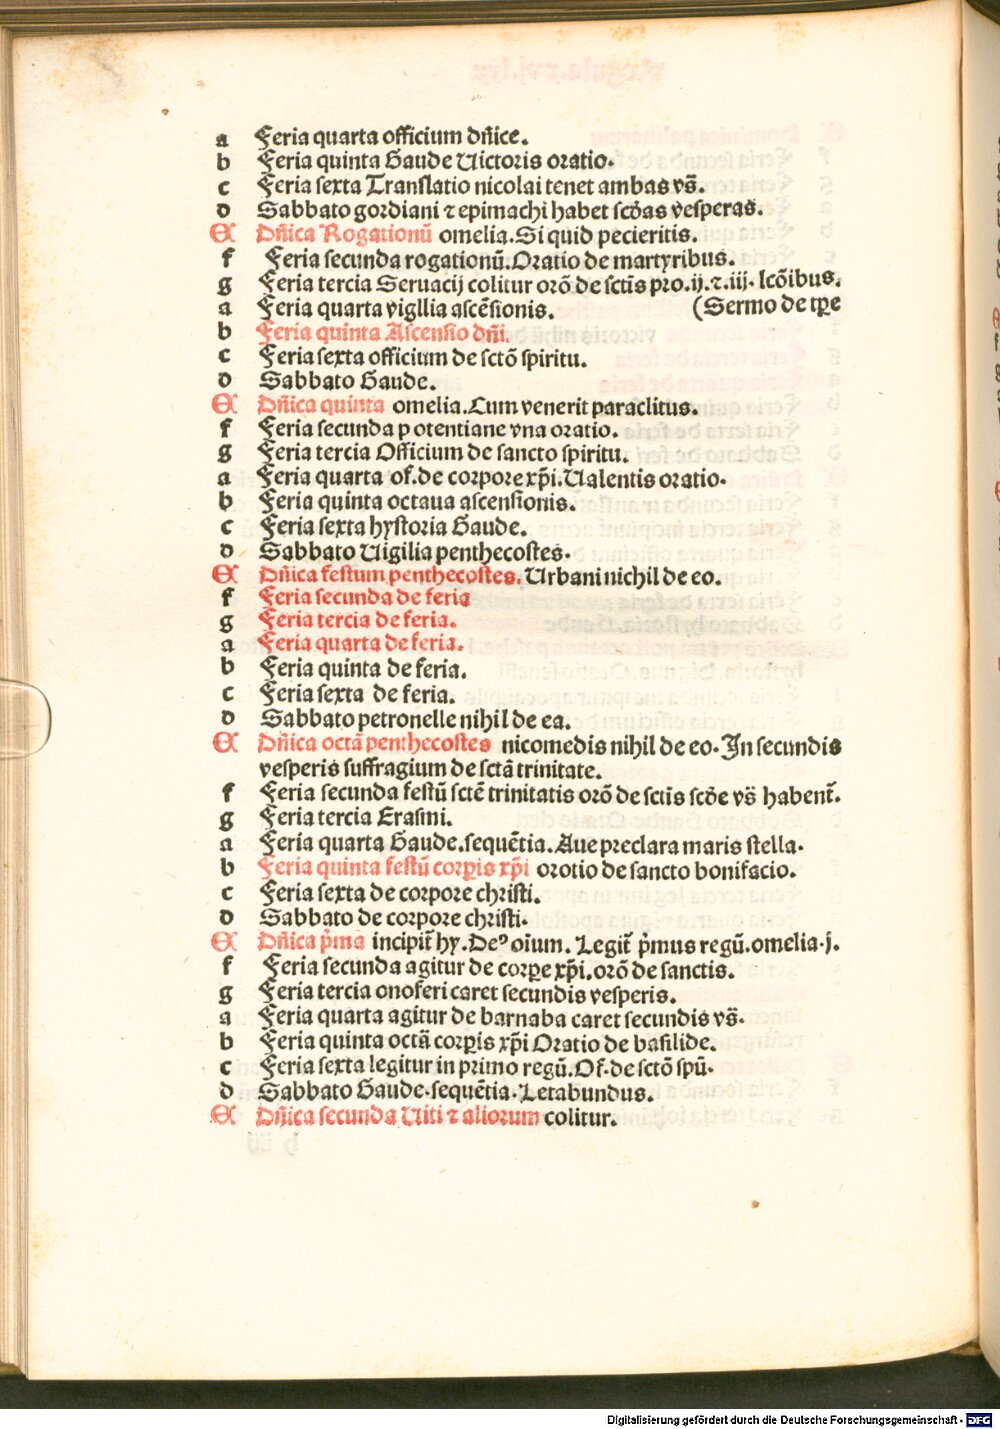 a Feria quarta officium dñice.
b Feria quinta Gaude Uictoris oratio.
c Feria sexta Translatio nicolai tenet ambas vs̃.
d Sabbato gordiani ⁊ epimachi habet scd̃as vesperas.
E Dñica Rogationũ omelia. Si quid pecieritis.
f Feria secunda rogationũ. Oratio de martyribus.
g Feria tercia Seruacij colitur orõ de sctĩs pro .ij. ⁊ .iij. lcõibus.
a Feria quarta vigllia ascẽsionis. (Sermo de tp̱e
b Feria quinta Ascensio dñi.
c Feria sexta officium de sctõ spiritu.
d Sabbato Gaude.
E Dñica quinta omelia. Cum venerit paraclitus.
f Feria secunda p otentiane vna oratio.
g Feria tercia Officium de sancto spiritu.
a Feria quarta of. de corpore xp̃i. Ualentis oratio.
b Feria quinta octaua ascensionis.
c Feria sexta hystoria Gaude.
d Sabbato Uigilia penthecostes.
E Dñica festum penthecostes. Urbani nichil de eo.
f Feria secunda de feria
g Feria tercia de feria.
a Feria quarta de feria.
b Feria quinta de feria.
c Feria sexta de feria.
d Sabbato petronelle nihil de ea.
E Dñica octã penthecostes nicomedis nihil de eo. In secundis
vesperis suffragium de sctã trinitate.
f Feria secunda festũ sctẽ trinitatis orõ de sctĩs scd̃e vs̃ habent̃.
g Feria tercia Erasmi.
a Feria quarta Gaude. sequẽtia. Aue preclara maris stella.
b Feria quinta festũ corp̱is xp̃i orotio de sancto bonifacio.
c Feria sexta de corpore christi.
d Sabbato de corpore christi.
E Dñica p̃ma incipit̃ hy. De⁹ oĩum. Legit̃ p̃mus regũ. omelia .j.
f Feria secunda agitur de corp̱e xp̃i. orõ de sanctis.
g Feria tercia onoferi caret secundis vesperis.
a Feria quarta agitur de barnaba caret secundis vs̃.
b Feria quinta octã corp̱is xp̃i Oratio de basilide.
c Feria sexta legitur in primo regũ. Of. de sctõ spũ.
d Sabbato Gaude. sequẽtia. Letabundus.
E Dñica secunda Uiti ⁊ aliorum colitur.
Digitalisierung gefördert durch die Deutsche Forschungsgemeinschaft - DFG